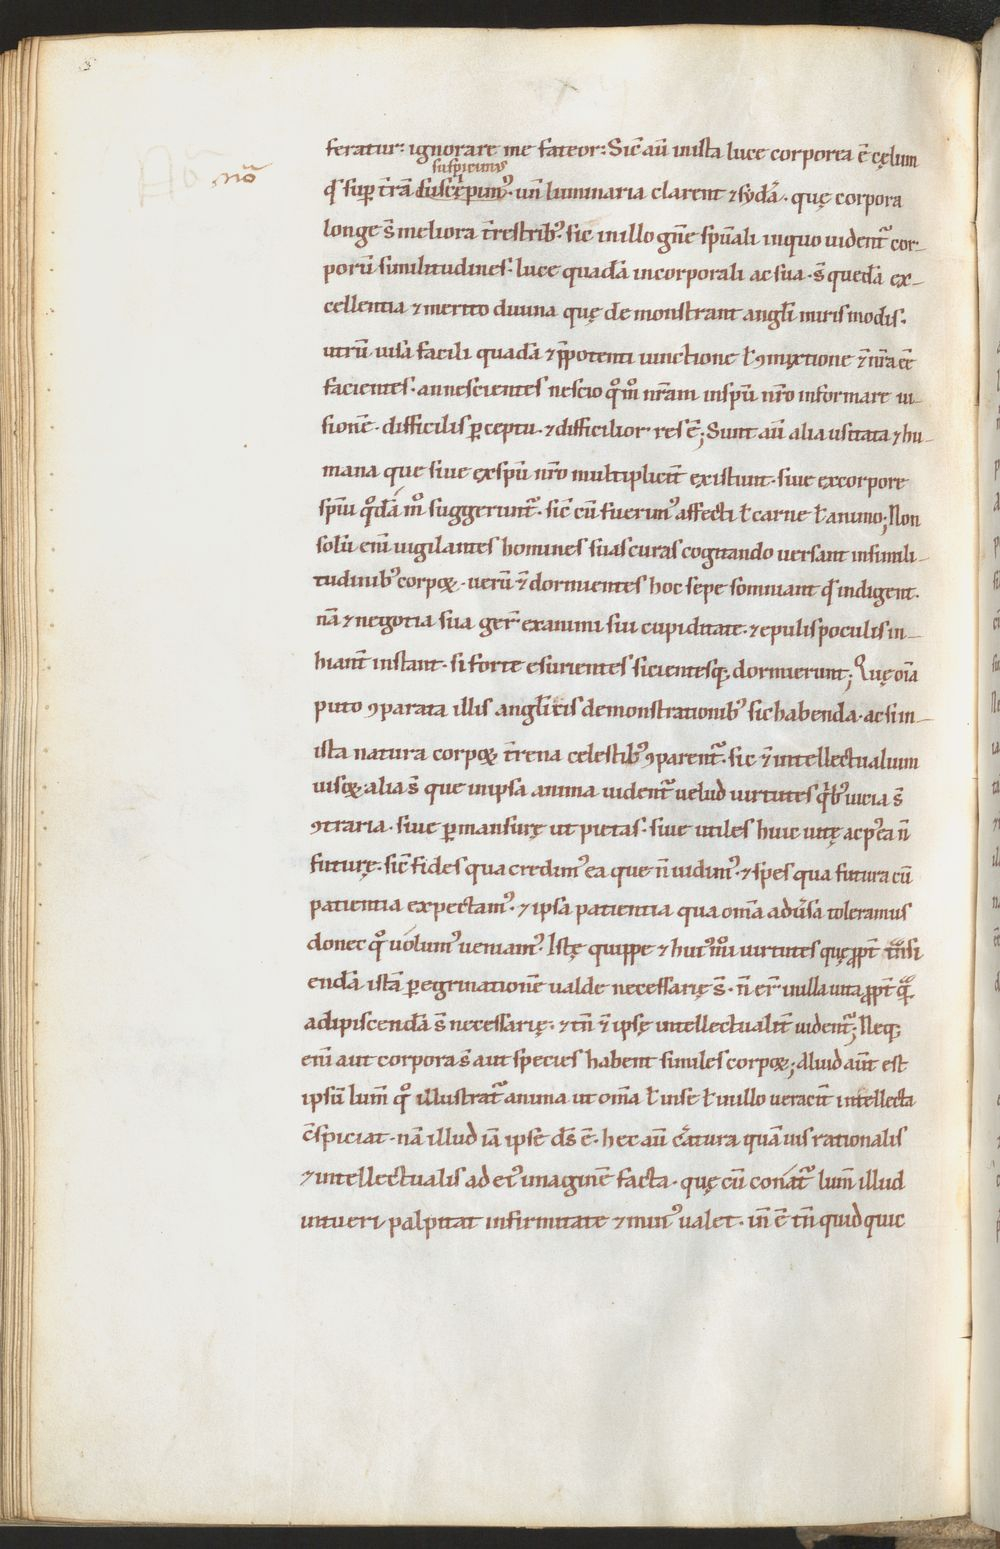 feratur: ignorare me fateor: Sic̄ aū in ista luce corporea ē cęlum
nō
suspicimus
qđ suꝑ t̄rā suscępimꝰ· un̄ luminaria clarent ⁊ sydā· quę corpora
longe s̄ meliora t̄restribꝰ· sic in illo gn̄e spūali in quo uident̄ cor-
porū similitudines· luce quadā incorporali ac sua· s̄ quedā ex-
cellentia ⁊ merito diuina quę demonstrant angłi miris modis·
utrū uisa facili quadā ⁊ p̄potenti iunctione ł ꝯmixtione ⁊ nr̄a eē
facientes· an nescientes nescio qͦmͦ nr̄am in spū nr̄o informare ui-
sionē· difficilis ꝑceptu· ⁊ difficilior res ē; Sunt aū alia usitata ⁊ hu-
mana que siue ex spū nr̄o multiplicit̄ existunt· siue ex corpore
spiui qͦdā mͦ suggerunt̄· sic̄ cū fuerimꝰ affecti ł carne ł animo; Non
solū enī uigilantes homines suas curas cogitando uersant in simili-
tudinibꝰ corpoꝝ· uerū ⁊ dormientes hoc sepe somniant qđ indigent·
nā ⁊ negotia sua ger̄ ex animi sui cupiditate· ⁊ epulis poculis in-
hiant̄ instant· si forte esurientes sicientesqꝫ dormierunt; Quę oīa
puto ꝯparata illis angłicis demonstrationibꝰ sic habenda· ac si in-
ista natura corpoꝝ t̄rena celestibꝰ ꝯparent̄· sic ⁊ intellectualium
uisoꝝ· alia s̄ que in ipsa anima uident̄ uelud uirtutes qͥbꝰ uicia s̄
ꝯtraria· siue ꝑmansurę ut pietas· siue utiles huic uitę ac pꝰea n̄
futurę· sic̄ fides qua credimꝰ ea que n̄ uidimꝰ· ⁊ spes qua futura cū
patientia expectamꝰ· ⁊ ipsa patientia qua om̄a adūsa toleramus
donec qͦ uolumꝰ ueniamꝰ· Istę quippe ⁊ huiꝰmͦi uirtutes quę ꝓpt̄ tͣnsi
endā istā ꝑegrinationē ualde necessarię s̄· n̄ er̄ in illa uita ꝓpt̄ qͣꝫ
adipiscendā s̄ necessarię· ⁊ tn̄ ⁊ ipsę intellectualit̄ uident̄; Neqꝫ
enī aut corpora s̄ aut species habent similes corpoꝝ; Aliud aūt est
ipsū lum̄ qͦ illustrat̄ anima ut om̄a ł in se ł in illo ueracit̄ intellecta
ꝯspiciat· nā illud iā ipse dš ē· hec aū cͤatura quāuis rationalis
⁊ intellectualis ad eiꝰ imaginē facta· quę cū conat̄ lum̄ illud
intueri· palpitat infirmitate ⁊ minꝰ ualet· in̄ ē tn̄ quidquic